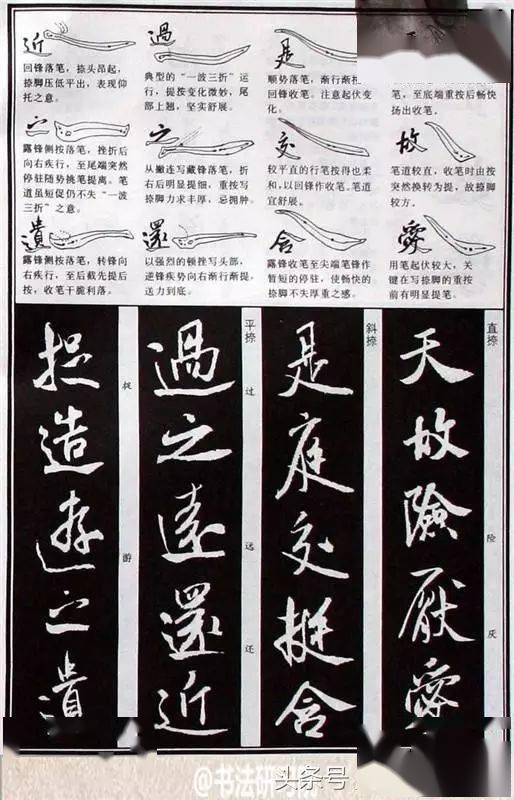 近
回锋落笔，捺头昂起，
捺脚压低平出，表现仰
托之意。
過
典型的“一波三折”运
行，提按变化微妙，尾
部上翘，坚实舒展。
是
顺势落笔，渐行渐
回锋收笔。注意起伏变
化。
笔，至底端重按后畅快
扬出收笔。
之
露锋侧按落笔，挫折后
向右疾行，至尾端突然
停驻随势挑笔提离。笔
道虽短促仍不失“一波
三折”之意。
之
从撇连写藏锋落笔，折
右后明显提细，重按写
捺脚力求丰厚，忌拥肿。
交
较平直的行笔按得也柔
和，以回锋作收笔。笔道
宜舒展。
故
笔道较直，收笔时由按
突然换转为提，故捺脚
较方。
遺
露锋侧按落笔，转锋向
右疾行，至后截先提后
按，收笔干脆利落。
還
以强烈的顿挫写头部，
逆锋疾势向右渐行渐提，
送力到底。
含
露锋收笔至尖端笔锋作
暂短的停驻，使畅快的
捺脚不失厚重之感。
愛
用笔起伏较大，关
键在写捺脚的重按
前有明显提笔。
直捺
天故險厭愛
险
厌
斜捺
是庭交挺含
平捺
過之遠還近
过
远
还
捉造遊之遺
捉
游
@书法研
头条号